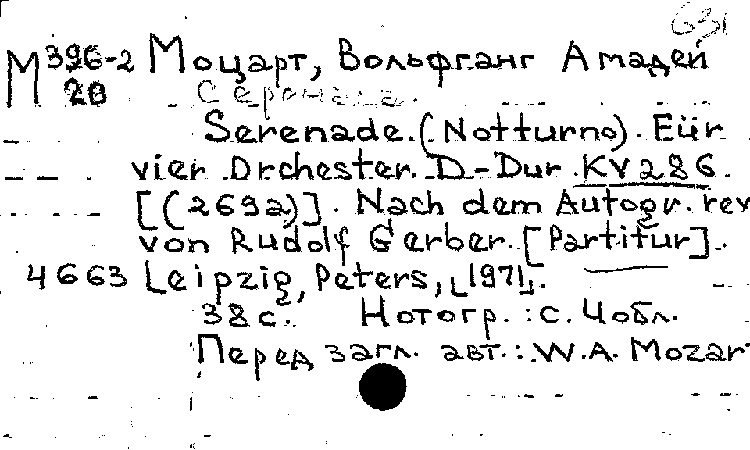 631
М 396-2 Моцарт, Вольфганг Амадей
20 Серенада.
Serenade. (Notturno). Für
vier Orchester. D-Dur KV 286.
[(269a)]. Nach dem Autogr. rev
von Rudolf Gerber. [Partitur].
4663 Leipzig, Peters, [1971].
38 с. Нотогр. : с. 4 обл.
Перед загл. авт. : W. A. Mozar